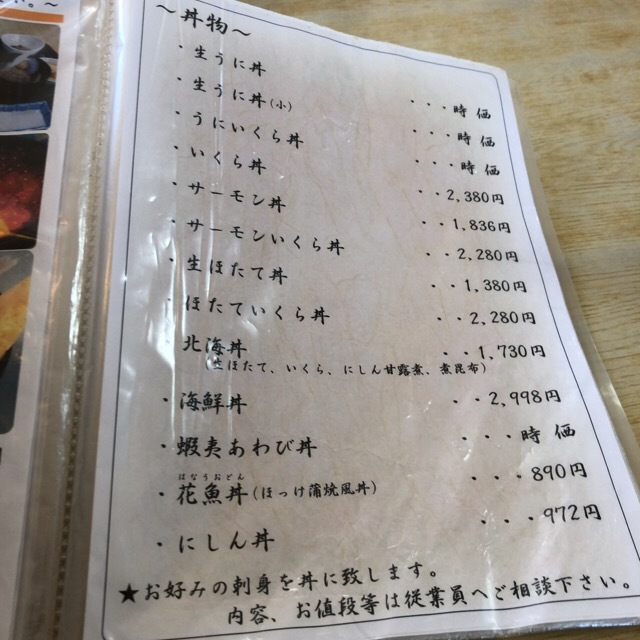 。～
～丼物～
・生うに丼 ・・・時価
・生うに丼(小) ・・・時価
・うにいくら丼 ・・・時価
・いくら丼 ・・2,380円
・サーモン丼 ・・1,836円
・サーモンいくら丼 ・・2,280円
・生ほたて丼 ・・1,380円
・ほたていくら丼 ・・2,280円
・北海丼 ・・1,730円
(生ほたて、いくら、にしん甘露煮、煮昆布)
・海鮮丼 ・・2,998円
・蝦夷あわび丼 ・・・時価
はなうおどん
・花魚丼(ほっけ蒲焼風丼) ・・・890円
・にしん丼 ・・・972円
★お好みの刺身を丼に致します。
内容、お値段等は従業員へご相談下さい。